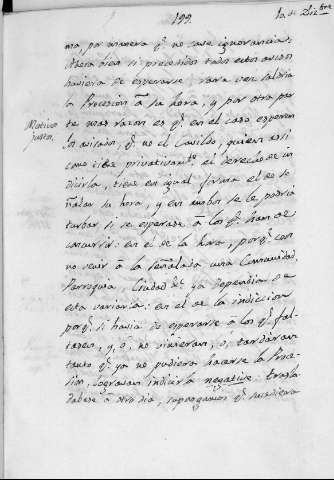 199.
10. de Dizbre
ma, por manera q.e no cave ignorancia.
Ahora bien si precedidos todos estos avisos
huviera de esperarse: rara vez saldria
la Procesion â su hora, y por otra par
te mas razon es q.e en el caso esperen
los avisados, q.e no el Cavildo, quien asi
como tiene privativam.te el derecho de in
dicirla, tiene en igual forma el de se
ñalar su hora, y en ambos se le podria
turbar si se esperase â los q.e han de
concurrir: en el de la hora, porq.e con
no venir â la señalada una Comunidad,
Parroquia, Ciudad &. ya dependia de
esta variarla: en el de la indiccion
porq.e si havia de esperarse â los q.e fal
tasen, y, ô, no vinieran, ô, tardaran
tanto q.e ya no pudiera hacerse la Proce
sion, lograran indicirla negative: trasla
dabase â otro dia, supongamos q.e sucediera
Motivos
justos.